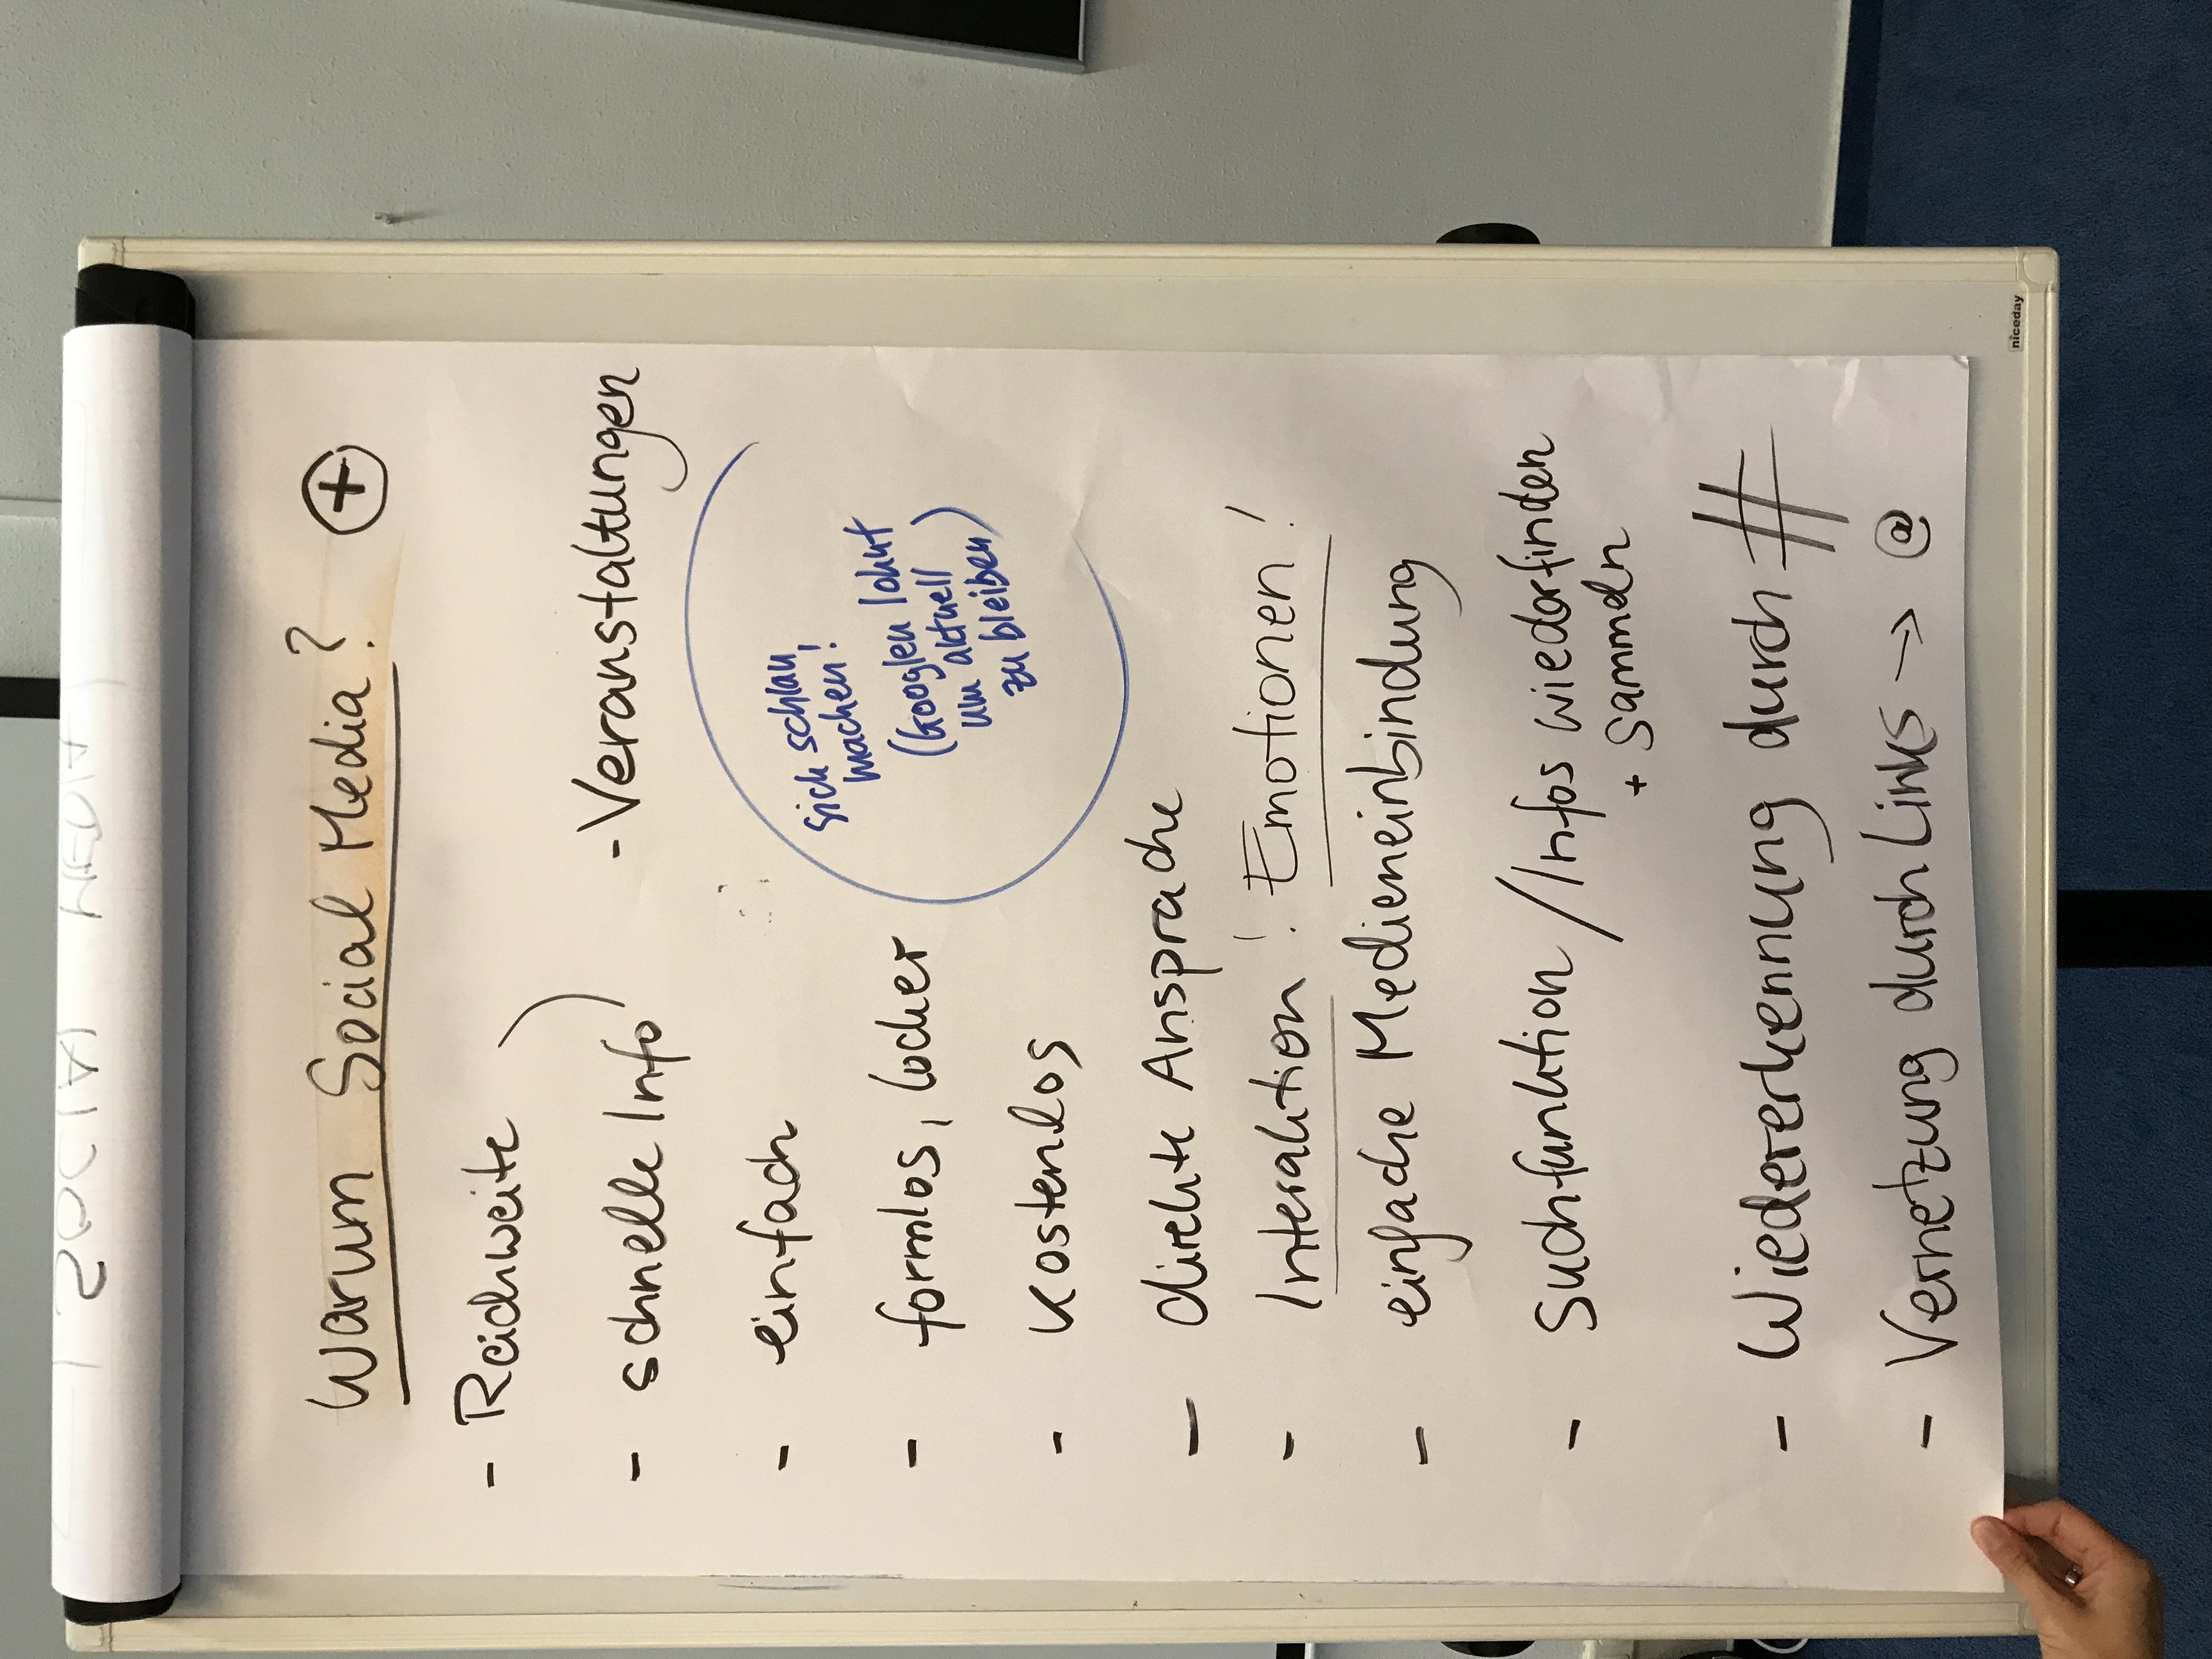 SOCIAL MEDIA
Warum Social Media? +
- Reichweite
- schnelle Info
- Veranstaltungen
- einfach
- formlos, locker
- kostenlos
sich schlau
machen!
(Googlen lohnt
um aktuell
zu bleiben)
- direkte Ansprache
- Interaktion! Emotionen!
- einfache Medieneinbindung
- Suchfunktion / Infos wiederfinden
+ sammeln
- Wiedererkennung durch #
- Vernetzung durch Links → @
niceday